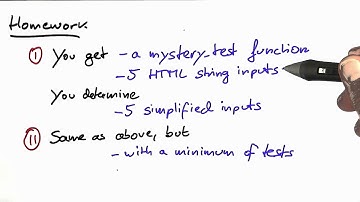 Homework.
I You get - a mystery-test function
- 5 HTML string inputs
You determine
- 5 simplified inputs
II Same as above, but
- with a minimum of tests